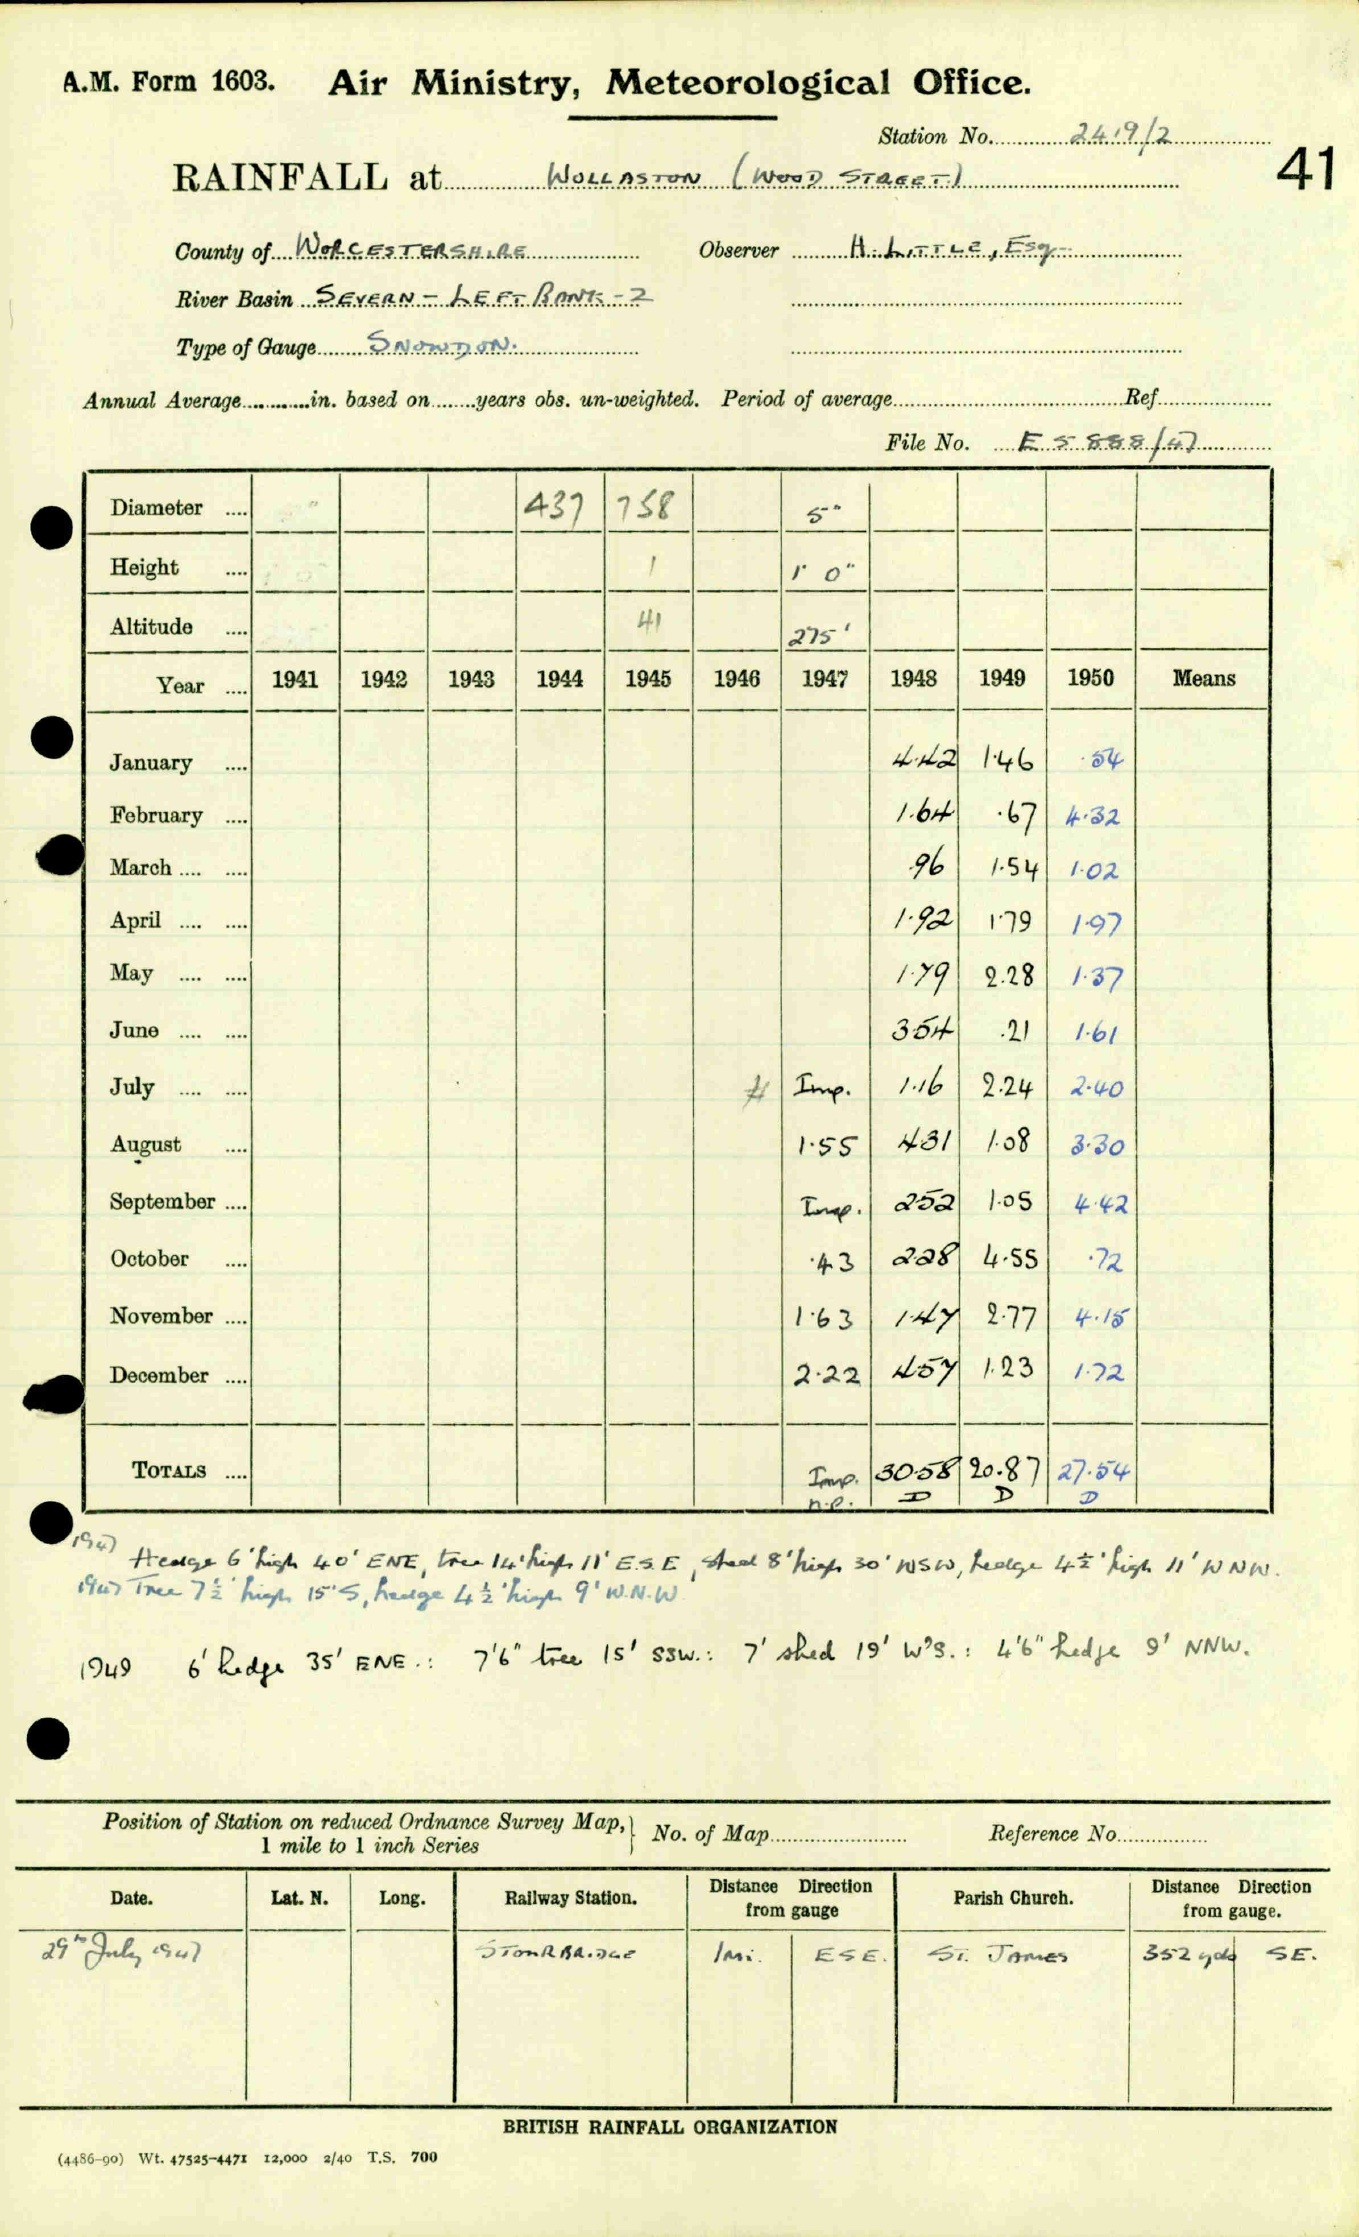 A.M. Form 1603. Air Ministry, Meteorological Office.
Station No. 2419/2
41
RAINFALL at WOLLASTON (WOOD STREET.)
County of WORCESTERSHIRE Observer H. LITTLE, Esq
River Basin SEVERN - LEFT BANK - 2
Type of Gauge SNOWDON.
Annual Average............in. based on........years obs. un-weighted. Period of average.................... Ref....................
File No. ES 888/47
Diameter .... 437 758 5"
Height .... 1 1' 0"
Altitude .... 41 275'
Year .... 1941 1942 1943 1944 1945 1946 1947 1948 1949 1950 Means
January .... 4.42 1.46 .54
February .... 1.64 .67 4.32
March .... .... .96 1.54 1.02
April .... .... 1.92 1.79 1.97
May .... .... 1.79 2.28 1.37
June .... .... 3.54 .21 1.61
July .... .... # Imp. 1.16 2.24 2.40
August .... 1.55 4.31 1.08 3.30
September .... Imp. 2.52 1.05 4.42
October .... .43 2.28 4.55 .72
November .... 1.63 1.47 2.77 4.15
December .... 2.22 4.57 1.23 1.72
TOTALS .... Imp. 30.58 20.87 27.54
n.p. D D D
1947 Hedge 6' high 40' ENE, tree 14' high 11' E.S.E, shed 8' high 30' WSW, hedge 4½' high 11' WNW.
1947 Tree 7½' high 15' S, hedge 4½' high 9' W.N.W
1949 6' hedge 35' ENE.: 7'6" tree 15' SSW.: 7' shed 19' W'S.: 4'6" hedge 9' NNW.
Position of Station on reduced Ordnance Survey Map, } No. of Map.................... Reference No...............
1 mile to 1 inch Series
Date. Lat. N. Long. Railway Station. Distance Direction from gauge Parish Church. Distance Direction from gauge.
29th July 1947 STOURBRIDGE 1 mi. ESE. ST. JAMES 352 yds SE.
BRITISH RAINFALL ORGANIZATION
(4486-90) Wt. 47525-4471 12,000 2/40 T.S. 700